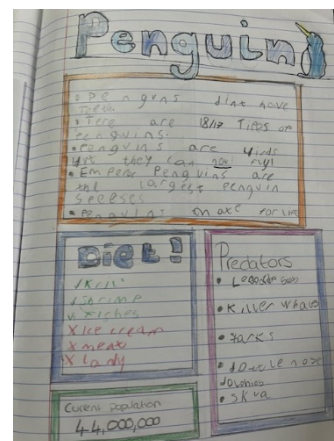 Penguin
• Pengens dint have
Teeth
• Tere are 18/17 Tipes of
penguins.
• Penguins are Yirds
yet they can not fly!
• Emperer Penguins are
the largest penguin
speeses
• penguins mate for life
Diet!
✓ Krill
✓ Shrimp
✓ Fishes
X Ice cream
X meat
X Candy
Predators
• Leopard seals
• Killer Whales
• Sarks
• Bottle nose
Dolphins
• Skua
Curent population
44,000,000